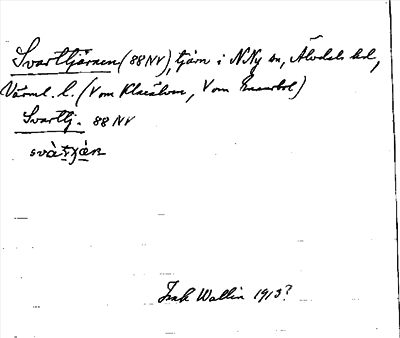 Svarttjärnen (88 NV), tjärn i N. Ny sn, Älvdals hd,
Värml. l. (V om Klarälven, V om
Svarttj. 88 NV
Isak Wallin 1913?